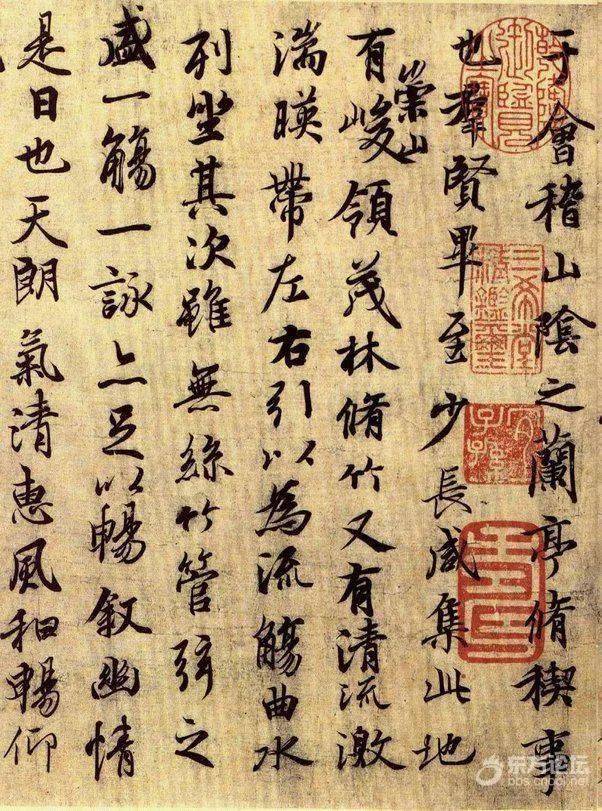 于會稽山陰之蘭亭脩稧事
也羣賢畢至少長咸集此地
有崇山峻領茂林脩竹又有清流激
湍暎帶左右引以為流觴曲水
列坐其次雖無絲竹管弦之
盛一觴一詠亦足以暢敘幽情
是日也天朗氣清惠風和暢仰
乾隆御覽之寶
三希堂精鑑璽
宜子孫
東方論壇
bbs.cnool.net